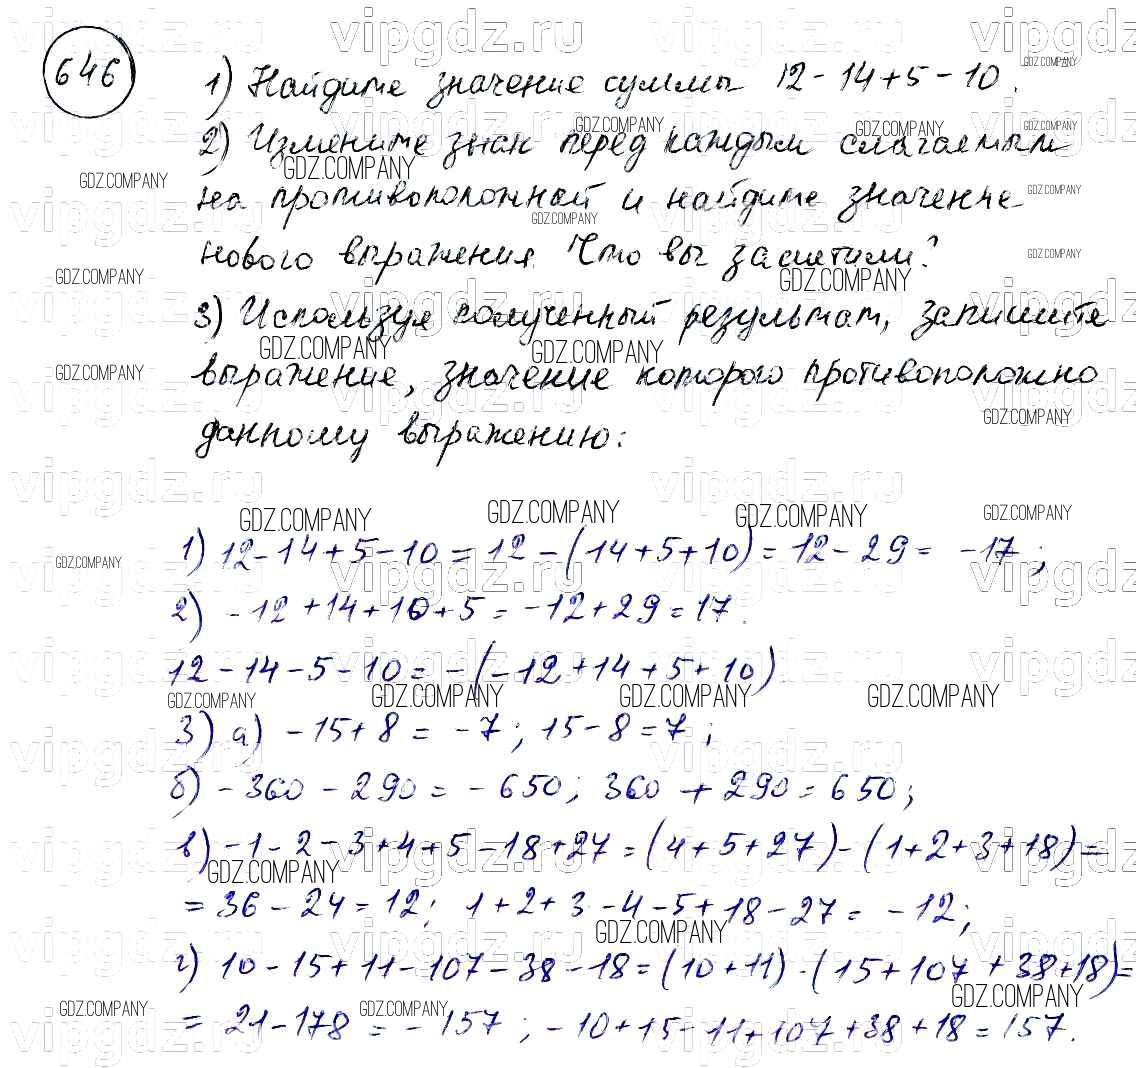 646
1) Найдите значение суммы 12 - 14 + 5 - 10.
2) Измените знак перед каждым слагаемым
на противоположный и найдите значение
нового выражения. Что вы заметили?
3) Используя полученный результат, запишите
выражение, значение которого противоположно
данному выражению:
1) 12 - 14 + 5 - 10 = 12 - (14 + 5 + 10) = 12 - 29 = -17;
2) -12 + 14 + 10 + 5 = -12 + 29 = 17.
12 - 14 - 5 - 10 = -(-12 + 14 + 5 + 10)
3) а) -15 + 8 = -7; 15 - 8 = 7;
б) -360 - 290 = -650; 360 + 290 = 650;
в) -1 - 2 - 3 + 4 + 5 - 18 + 27 = (4 + 5 + 27) - (1 + 2 + 3 + 18) =
= 36 - 24 = 12; 1 + 2 + 3 - 4 - 5 + 18 - 27 = -12;
г) 10 - 15 + 11 - 107 - 38 - 18 = (10 + 11) - (15 + 107 + 38 + 18) =
= 21 - 178 = -157; -10 + 15 - 11 + 107 + 38 + 18 = 157.
vipgdz.ru
GDZ.COMPANY